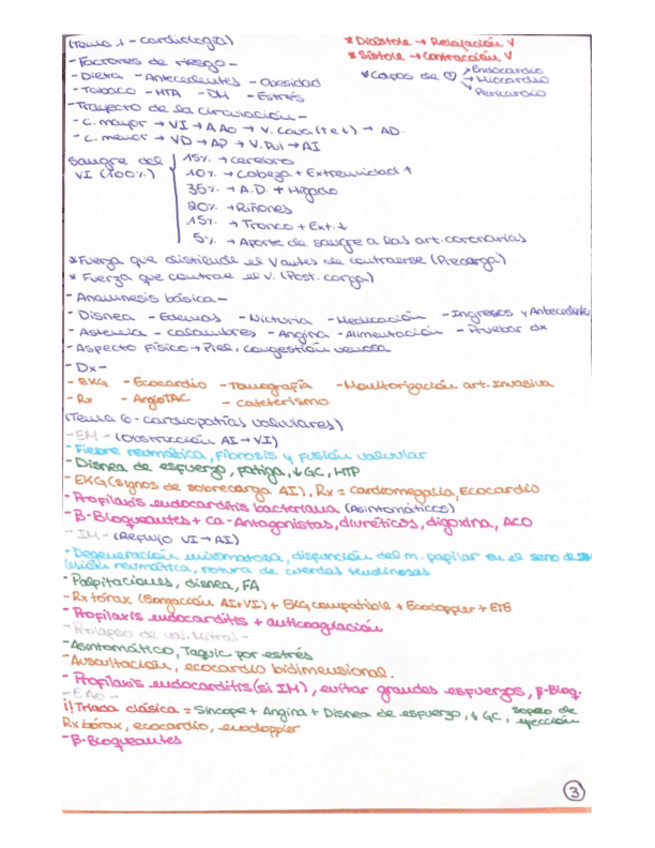 (Tema 1 - Cardiología)
* Diástole → Relajación V
* Sístole → Contracción V
- Factores de riesgo -
- Dieta - Antecedentes - Obesidad
- Tabaco - HTA - DM - Estrés
* Capas de ♡ → Endocardio
→ Miocardio
→ Pericardio
- Trayecto de la circulación -
- C. mayor → VI → A Ao → V. Cava (↑ e ↓) → AD.
- C. menor → VD → AP → V. Pul → AI
Sangre del VI (100%)
15% → Cerebro
10% → Cabeza + Extremidad ↑
35% → A.D. + Hígado
20% → Riñones
15% → Tronco + Ext. ↓
5% → Aporte de sangre a las art. coronarias
* Fuerza que distiende el V antes de contraerse (Precarga)
* Fuerza que contrae el V. (Post. carga)
- Anamnesis básica -
- Disnea - Edemas - Nicturia - Medicación - Ingresos y Antecedente
- Astenia - Calambres - Angina - Alimentación - Pruebas dx
- Aspecto Físico → Piel, congestión venosa
- Dx -
- EKG - Ecocardio - Tomografía - Monitorización art. Invasiva
- Rx - AngioTAC - Cateterismo
(Tema 6 - Cardiopatías valvulares)
- EM - (Obstrucción AI → VI)
- Fiebre reumática, Fibrosis y Fusión valvular
- Disnea de esfuerzo, fatiga, ↓ GC, HTP
- EKG (signos de sobrecarga AI), Rx = Cardiomegalia, Ecocardio
- Profilaxis endocarditis bacteriana (Asintomáticos)
- β-Bloqueantes + Ca-Antagonistas, diuréticos, digoxina, ACO
- IM - (Reflujo VI → AI)
- Degeneración mixomatosa, disfunción del m. papilar en el seno de
lesión reumática, rotura de cuerdas tendinosas
- Palpitaciones, disnea, FA
- Rx tórax (Elongación AI + VI) + EKG compatible + Ecodoppler + ETE
- Profilaxis endocarditis + anticoagulación
- Prolapso de val. Mitral -
- Asintomático, Taquic por estrés
- Auscultación, ecocardio bidimensional.
- Profilaxis endocarditis (si IM), evitar grandes esfuerzos, β-Bloq.
- EAo -
¡! Triada clásica = Síncope + Angina + Disnea de esfuerzo, ↓ GC, soplo de eyección
Rx tórax, ecocardio, ecodoppler
- β-Bloqueantes
3